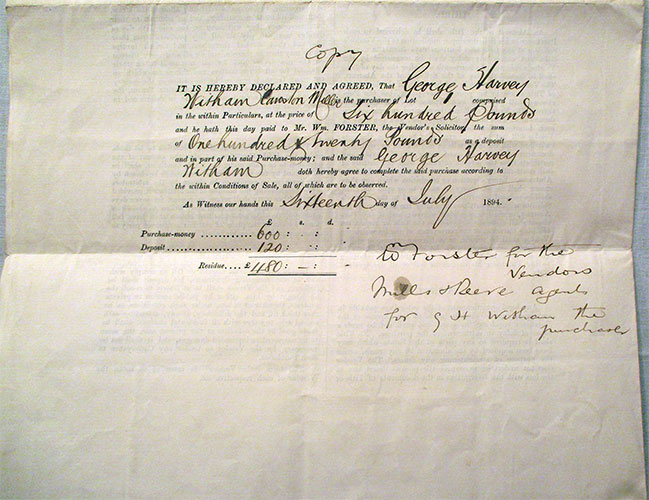 Copy
IT IS HEREBY DECLARED AND AGREED, That George Harvey
Witham Cawston Miller is the purchaser of Lot comprised
in the within Particulars, at the price of Six hundred Pounds
and he hath this day paid to Mr. Wm. FORSTER, the Vendor's Solicitor, the sum
of One hundred & twenty Pounds as a deposit
and in part of his said Purchase-money; and the said George Harvey
Witham doth hereby agree to complete the said purchase according to
the within Conditions of Sale, all of which are to be observed.
As Witness our hands this Sixteenth day of July 1894.
£ s. d.
Purchase-money ............ 600 : - :
Deposit ..................... 120 : - :
Residue .... £ 480 : - :
Wm Forster for the
Vendors
Mills & Reeve agents
for G H Witham the
purchaser